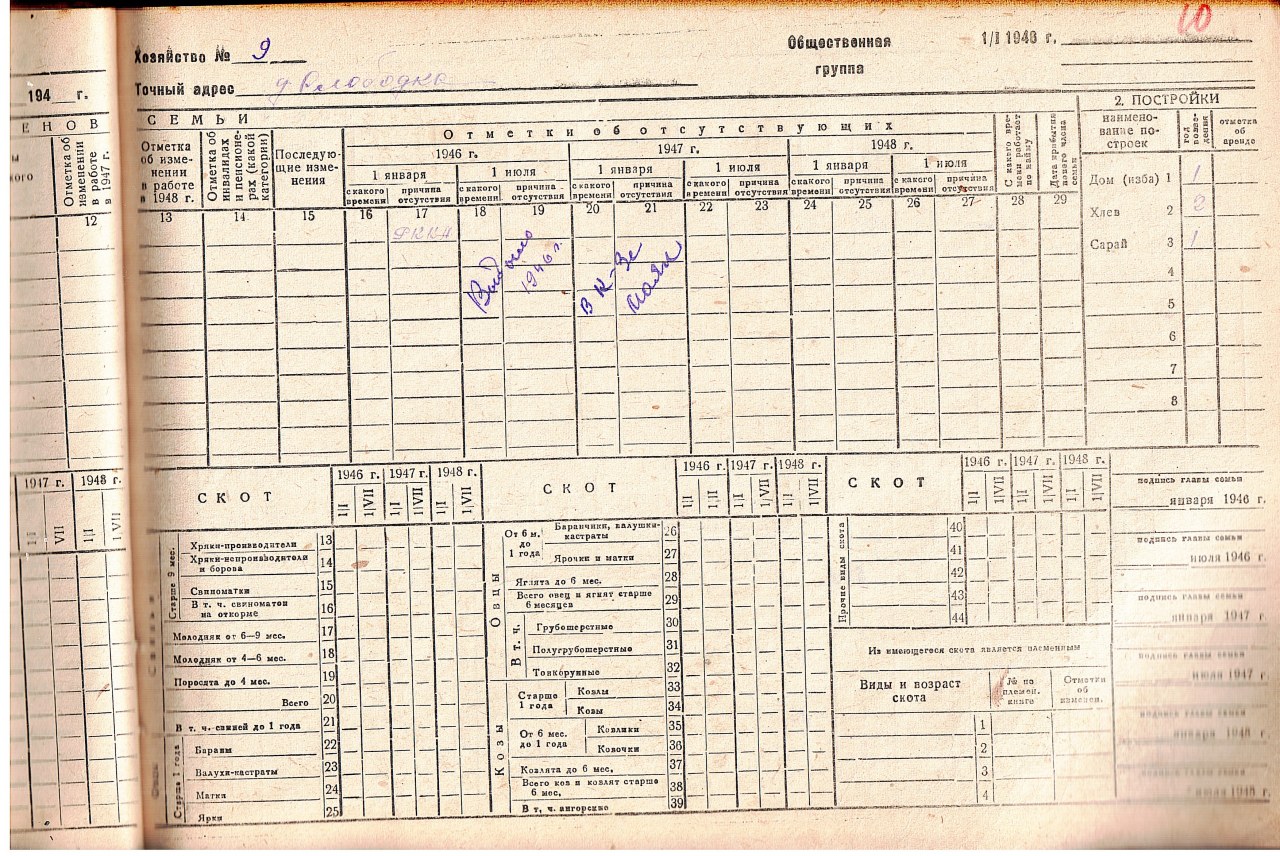 10
Хозяйство № 9
Общественная группа
1/I 1948 г.
Точный адрес д Слободка
194 г.
ЕНОВ
СЕМЬИ
2. ПОСТРОЙКИ
Отметка об изменении в работе в 1947 г.
Отметка об изменении в работе в 1948 г.
Отметка об инвалидах и пенсионерах (какой категории)
Последующие изменения
Отметки об отсутствующих
1946 г.
1947 г.
1948 г.
1 января
1 июля
1 января
1 июля
1 января
1 июля
с какого времени
причина отсутствия
с какого времени
причина отсутствия
с какого времени
причина отсутствия
с какого времени
причина отсутствия
с какого времени
причина отсутствия
с какого времени
причина отсутствия
С какого времени работает по найму
Дата прибытия нового члена семьи
наименование построек
год возведения
отметка об аренде
12 13 14 15 16 17 18 19 20 21 22 23 24 25 26 27 28 29
РККА
Выбыло 1946 г.
в к-зе
Дом (изба) 1 1
Хлев 2 2
Сарай 3 1
4
5
6
7
8
1947 г. 1948 г.
I/I VII I/I I/VII
СКОТ
1946 г. 1947 г. 1948 г.
I/I I/VII I/I I/VII I/I I/VII
Старше 9 мес.
Хряки-производители 13
Хряки-непроизводители и борова 14
Свиноматки 15
В т. ч. свиноматок на откорме 16
Молодняк от 6—9 мес. 17
Молодняк от 4—6 мес. 18
Поросята до 4 мес. 19
Всего 20
В т. ч. свиней до 1 года 21
Старше 1 года
Бараны 22
Валухи-кастраты 23
Матки 24
Ярки 25
СКОТ
1946 г. 1947 г. 1948 г.
I/I I/II I/I I/VII I/I I/VII
Овцы
От 6 м. до 1 года
Баранчики, валушки-кастраты 26
Ярочки и матки 27
Ягнята до 6 мес. 28
Всего овец и ягнят старше 6 месяцев 29
В т. ч.
Грубошерстные 30
Полугрубошерстные 31
Тонкорунные 32
Козы
Старше 1 года
Козлы 33
Козы 34
От 6 мес. до 1 года
Козлики 35
Козочки 36
Козлята до 6 мес. 37
Всего коз и козлят старше 6 мес. 38
В т. ч. ангорские 39
СКОТ
1946 г. 1947 г. 1948 г.
I/I I/VII I/I I/VII I/I I/VII
Прочие виды скота
40
41
42
43
44
Из имеющегося скота является племенным
Виды и возраст скота
№ по племен. книге
Отметки об изменен.
1
2
3
4
подпись главы семьи
января 1946 г.
подпись главы семьи
июля 1946 г.
подпись главы семьи
января 1947 г.
подпись главы семьи
июля 1947 г.
подпись главы семьи
января 1948 г.
подпись главы семьи
июля 1948 г.